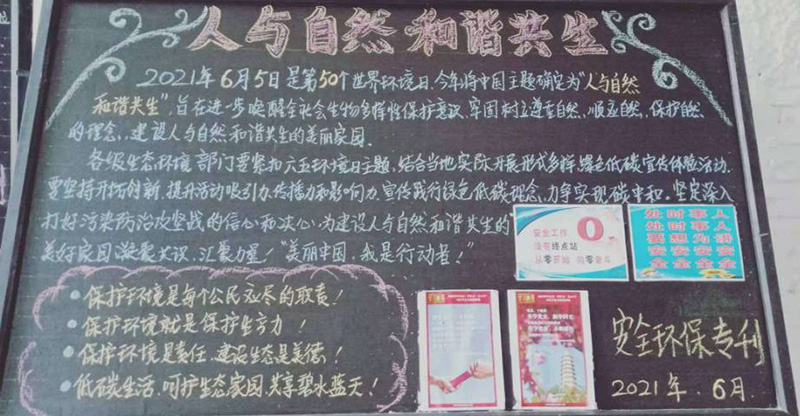 人与自然 和谐共生
2021年6月5日是第50个世界环境日,今年将中国主题确定为"人与自然
和谐共生",旨在进一步唤醒全社会生物多样性保护意识,牢固树立尊重自然、顺应自然、保护自然
的理念,建设人与自然和谐共生的美丽家园。
各级生态环境部门要紧扣六五环境日主题,结合当地实际,开展形式多样,绿色低碳宣传体验活动,
要坚持开拓创新,提升活动吸引力,传播力和影响力,宣传践行绿色低碳理念,力争实现碳中和,坚定深入
打好污染防治攻坚战的信心和决心,为建设人与自然和谐共生的
美好家园凝聚共识、汇聚力量!"美丽中国,我是行动者!"
安全工作
没有终点站
0
从零开始 向零奋斗
处时事人
处时事人
要想为讲
安安安安
全全全全
保护环境是每个公民应尽的职责!
保护环境就是保护生产力!
保护环境是责任,建设生态是美德!
低碳生活,呵护生态家园,共享碧水蓝天!
安全环保专刊
2021年.6月.